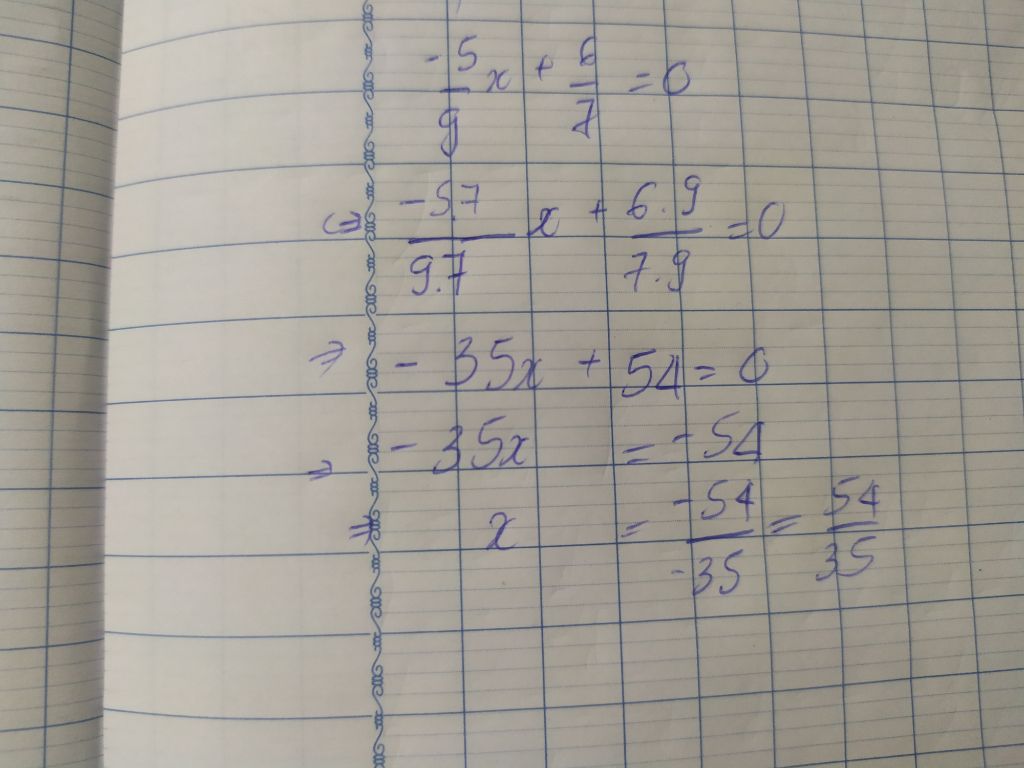 -5/9 x + 6/7 = 0
<=> -5.7/9.7 x + 6.9/7.9 = 0
=> - 35x + 54 = 0
=> - 35x = -54
=> x = -54/-35 = 54/35